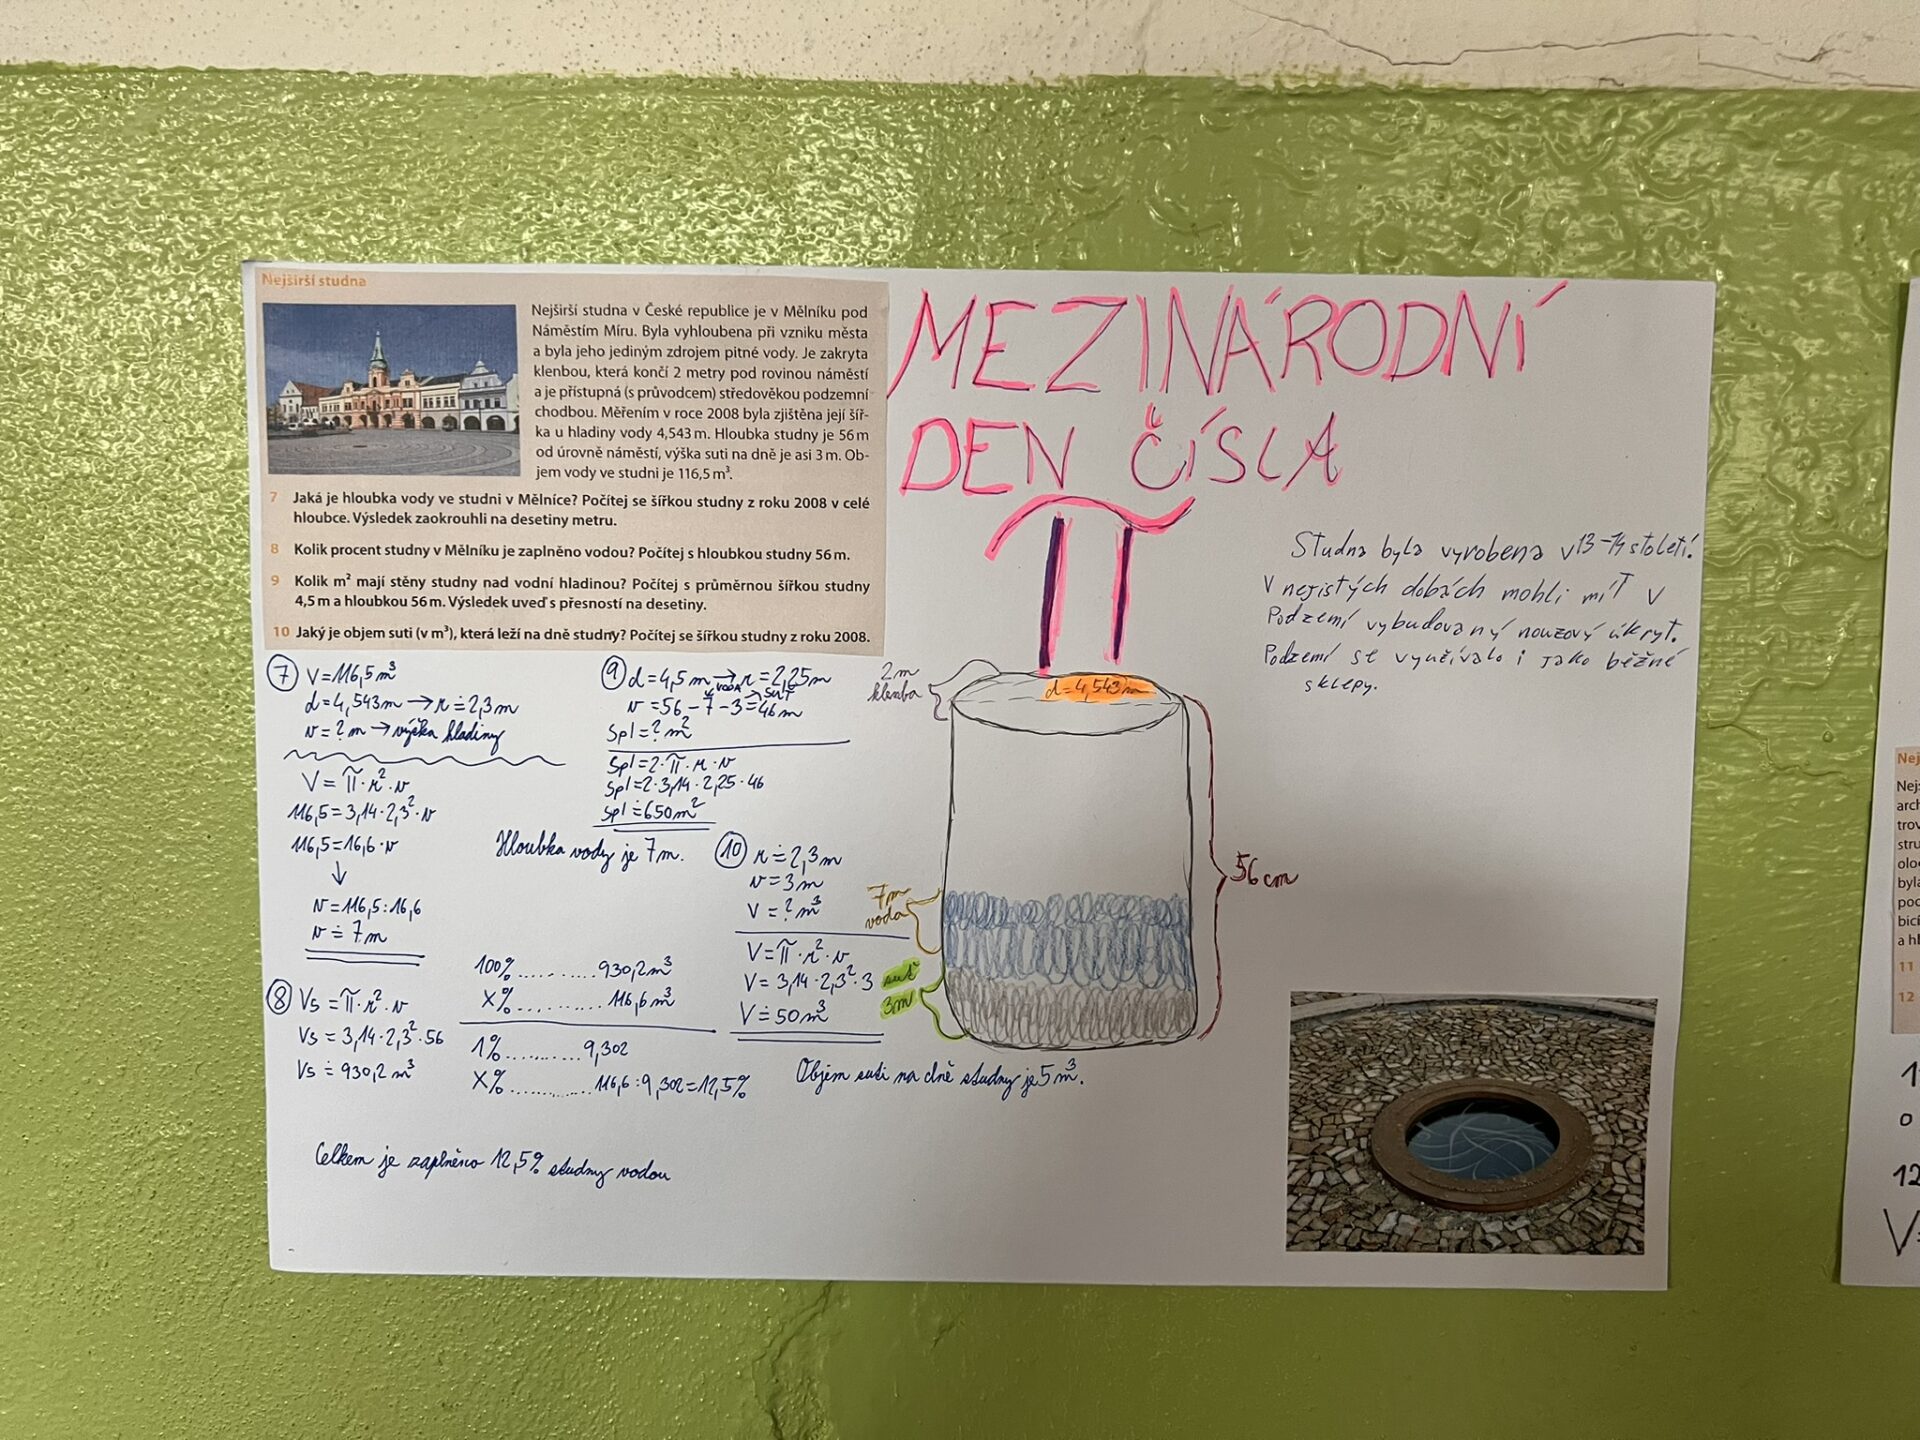 Nejširší studna
Nejširší studna v České republice je v Mělníku pod
Náměstím Míru. Byla vyhloubena při vzniku města
a byla jeho jediným zdrojem pitné vody. Je zakryta
klenbou, která končí 2 metry pod rovinou náměstí
a je přístupná (s průvodcem) středověkou podzemní
chodbou. Měřením v roce 2008 byla zjištěna její šíř-
ka u hladiny vody 4,543 m. Hloubka studny je 56 m
od úrovně náměstí, výška suti na dně je asi 3 m. Ob-
jem vody ve studni je 116,5 m³.
7 Jaká je hloubka vody ve studni v Mělníce? Počítej se šířkou studny z roku 2008 v celé
hloubce. Výsledek zaokrouhli na desetiny metru.
8 Kolik procent studny v Mělníku je zaplněno vodou? Počítej s hloubkou studny 56 m.
9 Kolik m² mají stěny studny nad vodní hladinou? Počítej s průměrnou šířkou studny
4,5 m a hloubkou 56 m. Výsledek uveď s přesností na desetiny.
10 Jaký je objem suti (v m³), která leží na dně studny? Počítej se šířkou studny z roku 2008.
MEZINÁRODNÍ
DEN ČÍSLA
π
Studna byla vyrobena v 13-14 století.
V nejistých dobách mohli mít v
Podzemí vybudovaný nouzový úkryt.
Podzemí se využívalo i jako běžné
sklepy.
7 V=116,5m³
d=4,543m → r≐2,3m
v=?m → výška hladiny
V=π·r²·v
116,5=3,14·2,3²·v
116,5=16,6·v
↓
v=116,5:16,6
v≐7m
Hloubka vody je 7m.
8 Vs=π·r²·v
Vs=3,14·2,3²·56
Vs≐930,2m³
100%...........930,2m³
X%............116,6m³
1%...........9,302
X%............116,6:9,302=12,5%
Celkem je zaplněno 12,5% studny vodou
9 d=4,5m → r=2,25m
voda suť
v=56-7-3=46m
Spl=?m²
Spl=2·π·r·v
Spl=2·3,14·2,25·46
Spl≐650m²
10 r≐2,3m
v=3m
V=?m³
V=π·r²·v
V=3,14·2,3²·3
V≐50m³
Objem suti na dně studny je 5m³.
2m
klenba
d=4,543m
56cm
7m
voda
suť
3m
Nej
Nej
arch
trov
stru
olo
byla
poc
bicí
a hl
11
12
1
0
12
V=